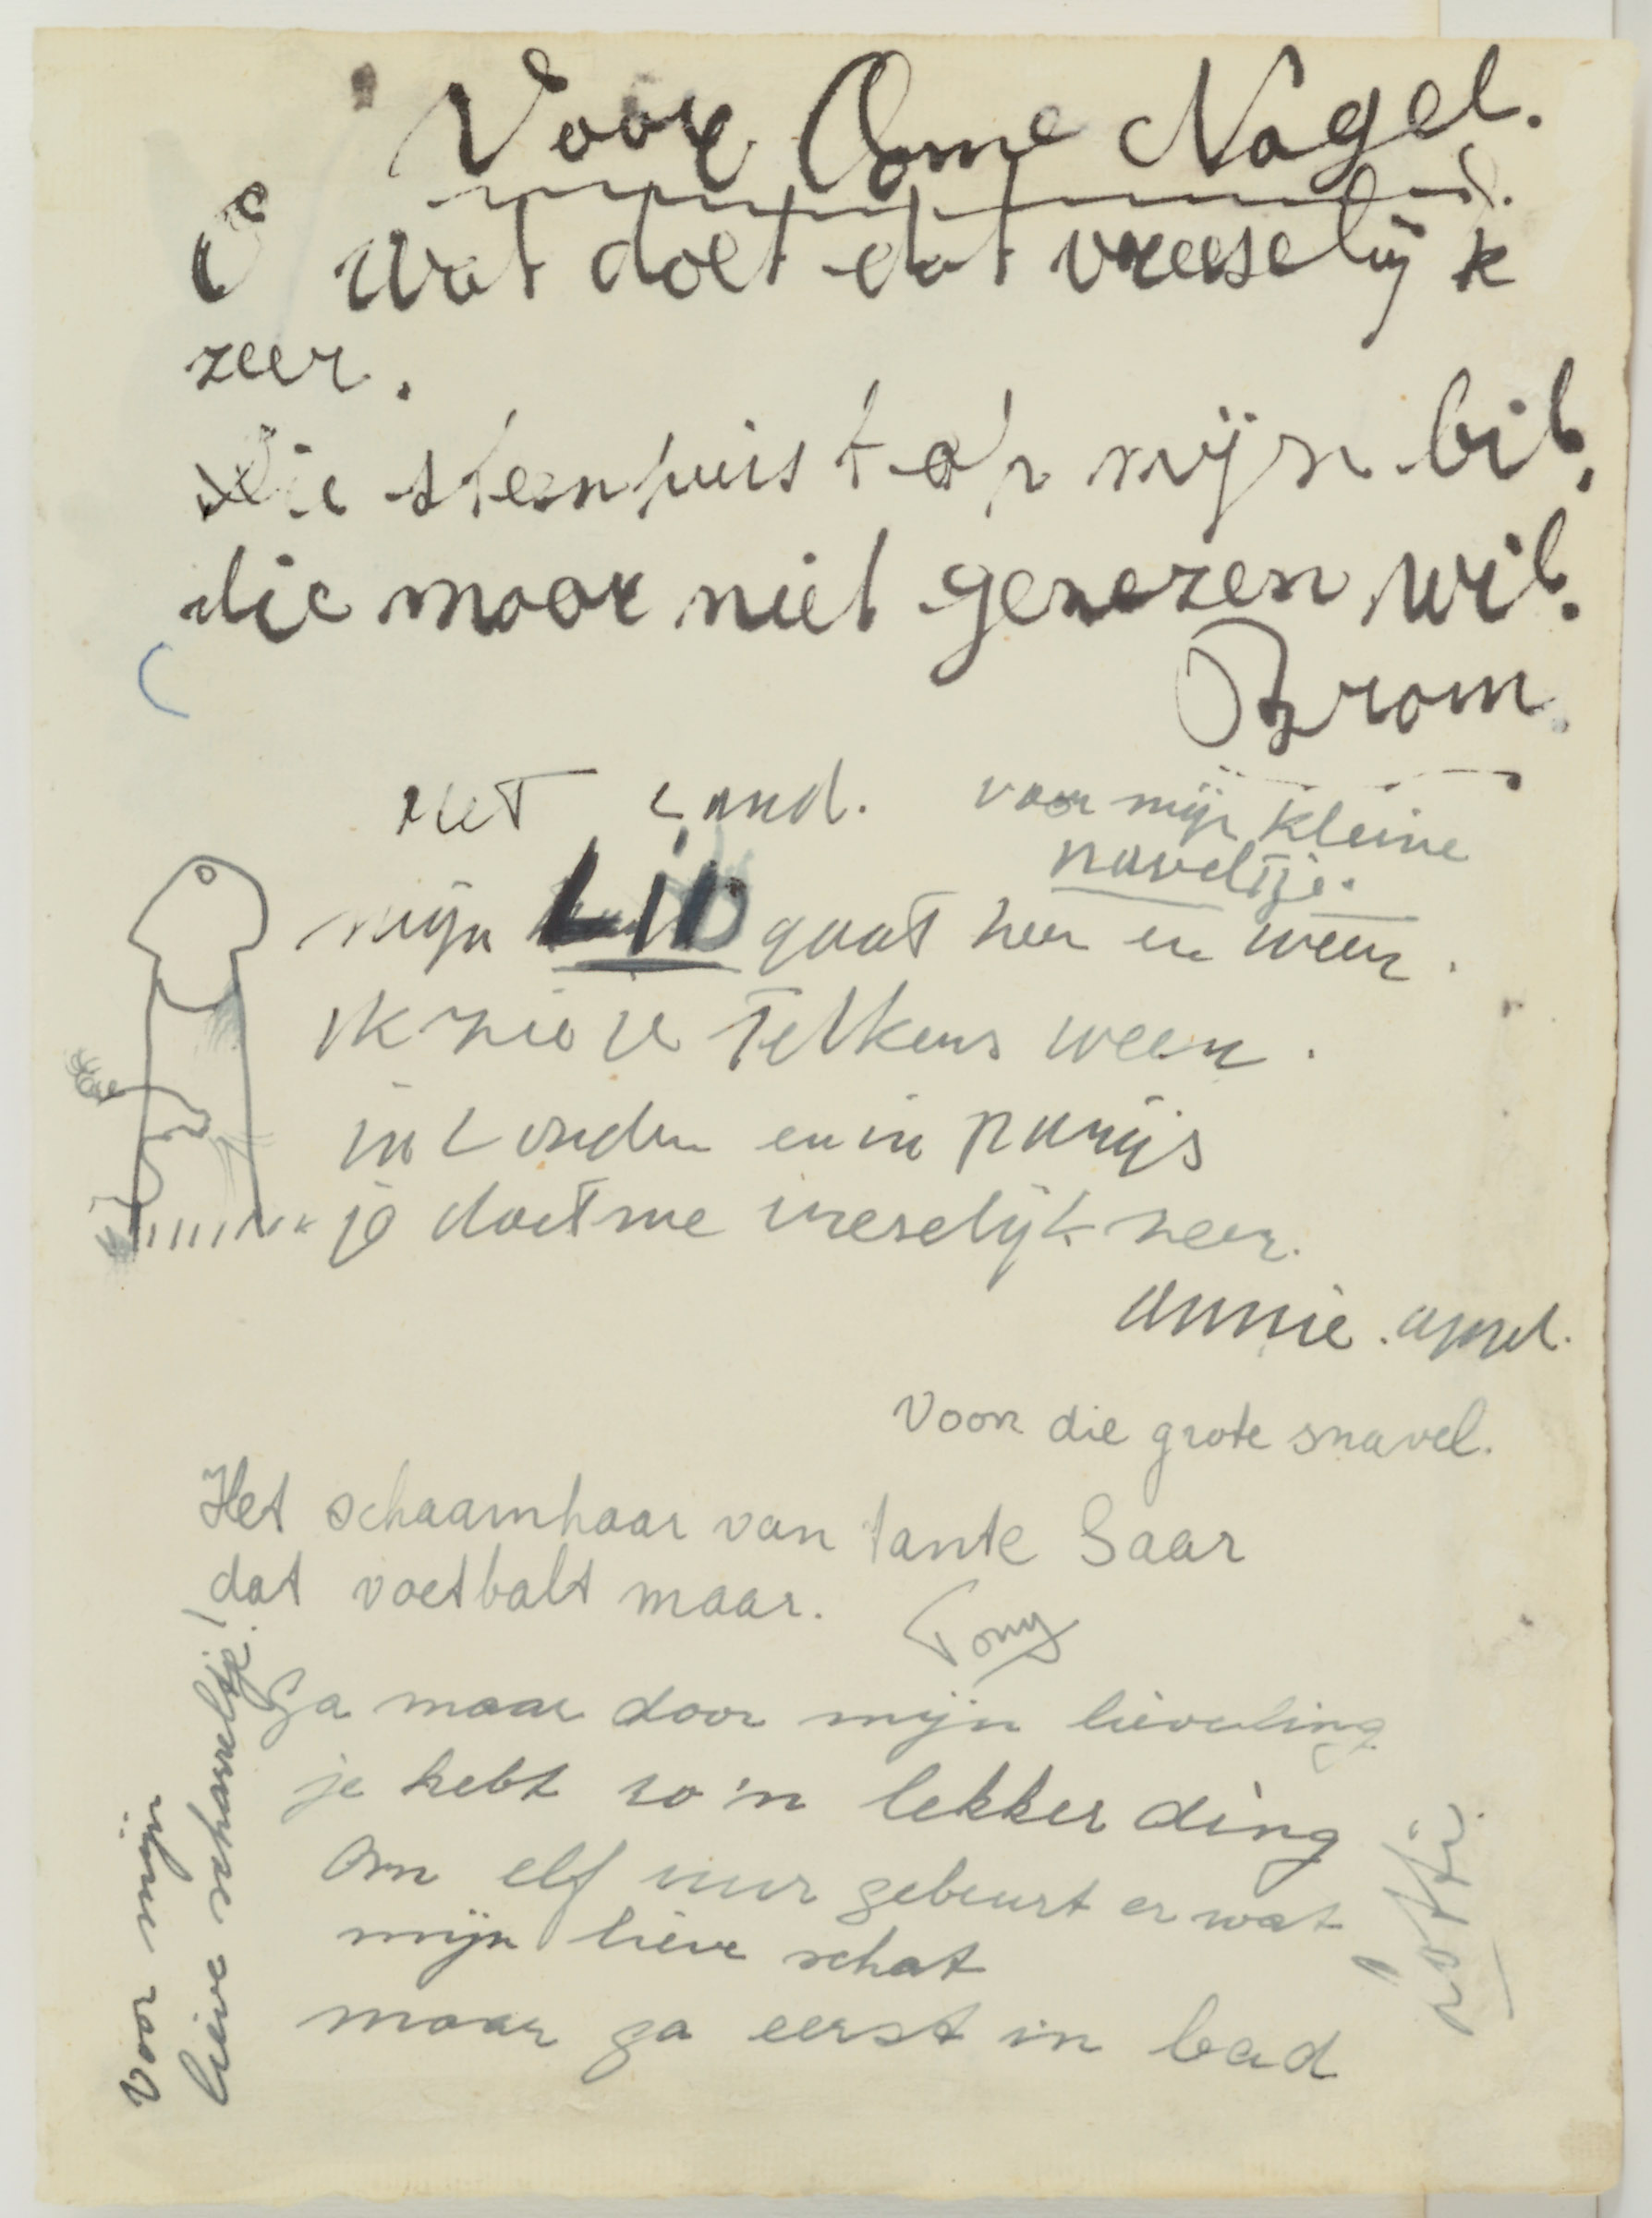 Voor Ome Nagel.
O wat doet dat vreeselijk
zeer.
die steenpuist op mijn bil,
die maar niet genezen wil.
Brom.
Het Lond.
voor mijn kleine
naveltje.
mijn Lid gaat heen en weer.
ik zie je telkens weer.
in Londen en in parijs
je doet me vreselijk zeer.
annie. appel.
Voor die grote snavel.
Het schaamhaar van tante Saar
dat voetbalt maar.
Tony
Ga maar door mijn lieveling
je hebt zo'n lekker ding
Om elf uur gebeurt er wat
mijn lieve schat
maar ga eerst in bad
Voor mijn
lieve scharreltje!